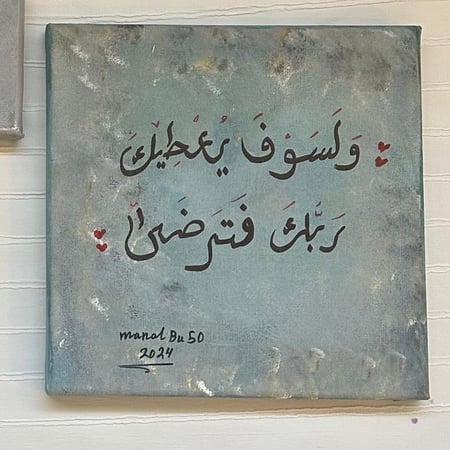 وَلَسَوْفَ يُعْطِيكَ
رَبُّكَ فَتَرْضَىٰ
manal Bu 50
2024